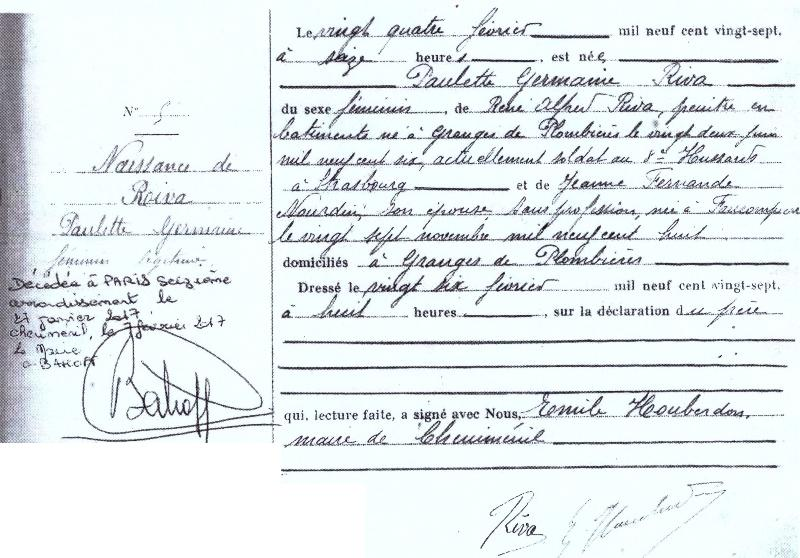 N° 5
Naissance de
Riva
Paulette Germaine
féminin légitime
Décédée à PARIS seizième
arrondissement le
27 janvier 2017
Cheniménil, le 7 février 2017
Le Maire
Le vingt quatre février mil neuf cent vingt-sept,
à seize heures, est née,
Paulette Germaine Riva
du sexe féminin, de René Alfred Riva, peintre en
batiments né à Granges de Plombières le vingt deux juin
mil neuf cent six, actuellement soldat au 8e Hussards
à Strasbourg et de Jeanne Fernande
Nourdin, son épouse, sans profession, née à
le vingt sept novembre mil neuf cent huit
domiciliés à Granges de Plombières
Dressé le vingt six février mil neuf cent vingt-sept,
à huit heures, sur la déclaration du père
qui, lecture faite, a signé avec Nous, Emile Houberdon,
maire de Cheniménil
Riva